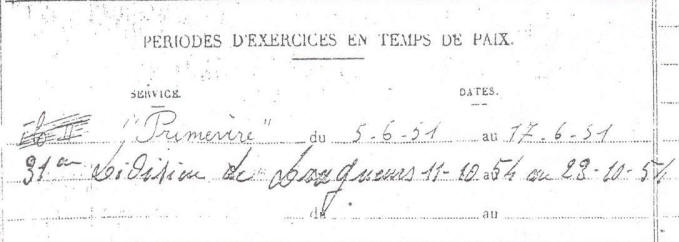 PERIODES D'EXERCICES EN TEMPS DE PAIX.
SERVICE. DATES.
"Primevère" du 5-6-51 au 17-6-51
31em Division de Dragueurs 11-10 à 54 au 23-10-54
du au